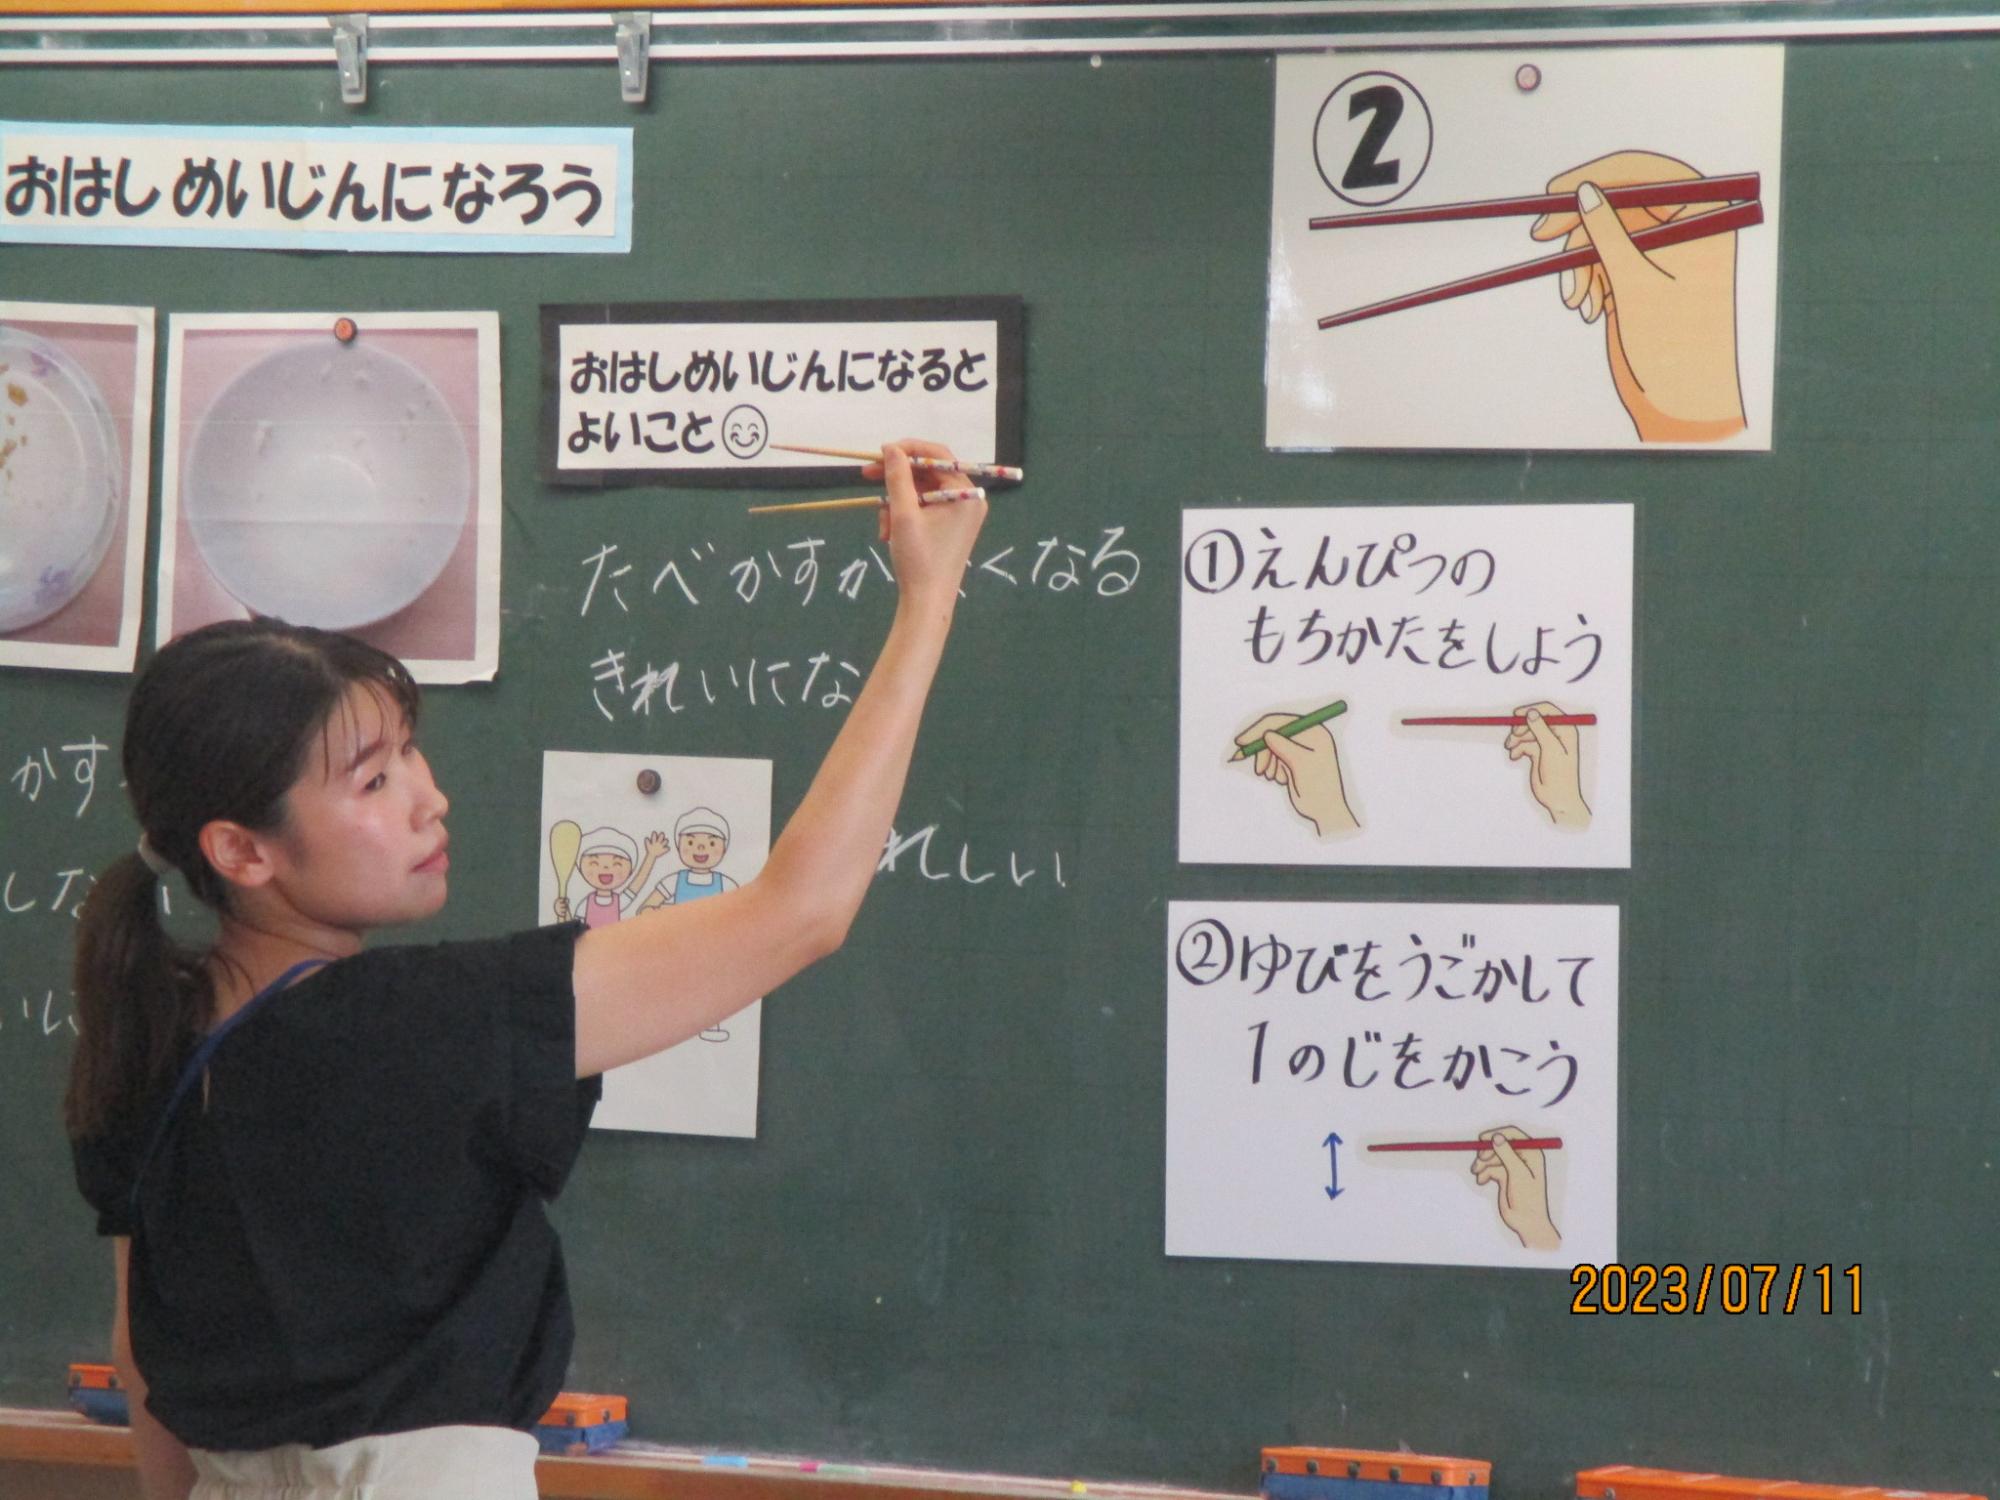 おはしめいじんになろう
おはしめいじんになると
よいこと
たべかすが くなる
きれいにな
れしい
かす
しな
いに
2
①えんぴつの
もちかたをしよう
②ゆびをうごかして
1のじをかこう
2023/07/11